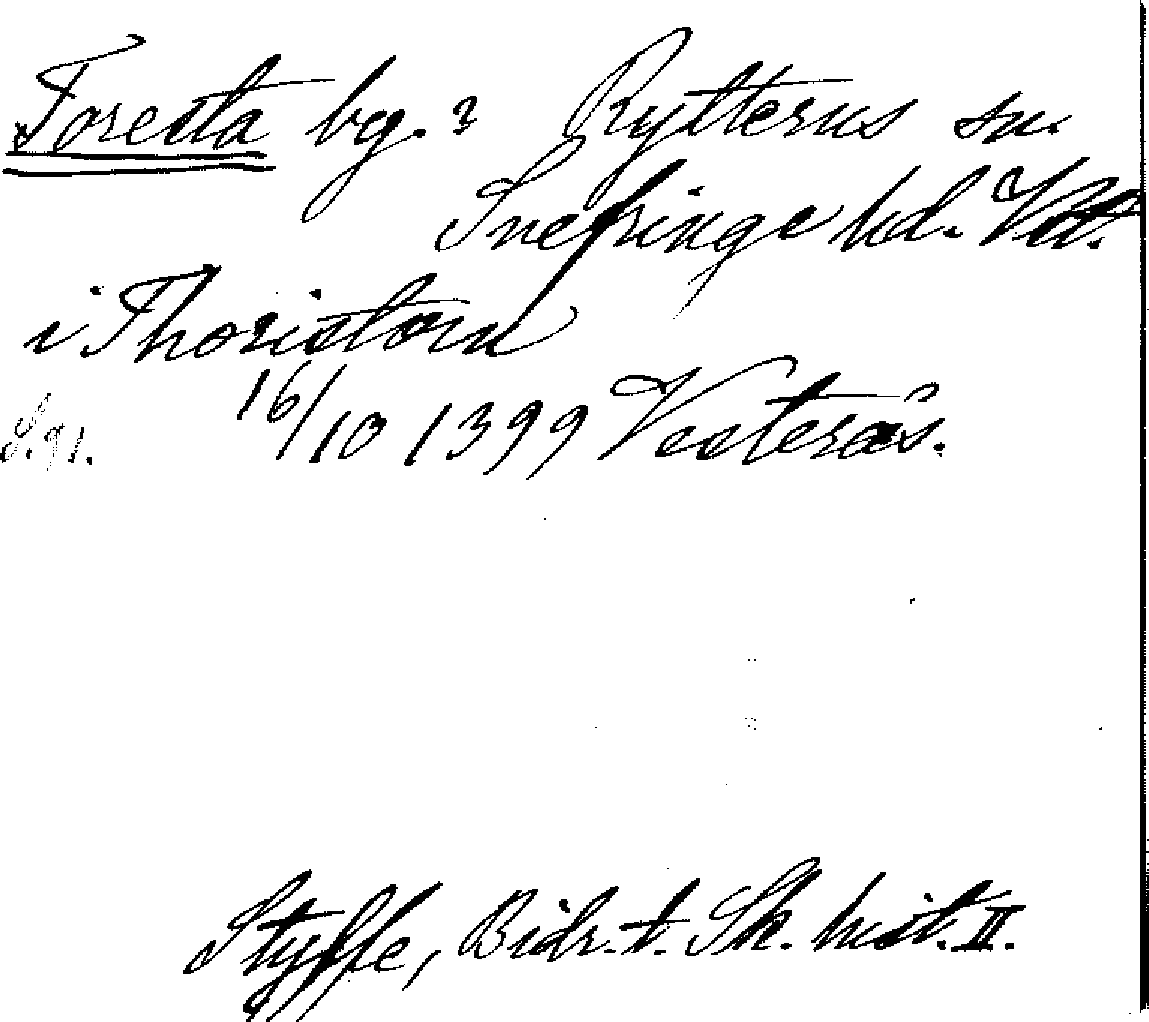 Foresta bg. ? Rytterns sn.
Snefringe hd. Vstt.
i Thoristorn
16/10 1399 Vesterås.
S. 91.
Styffe, Bidr. t. Sk. hist. II.